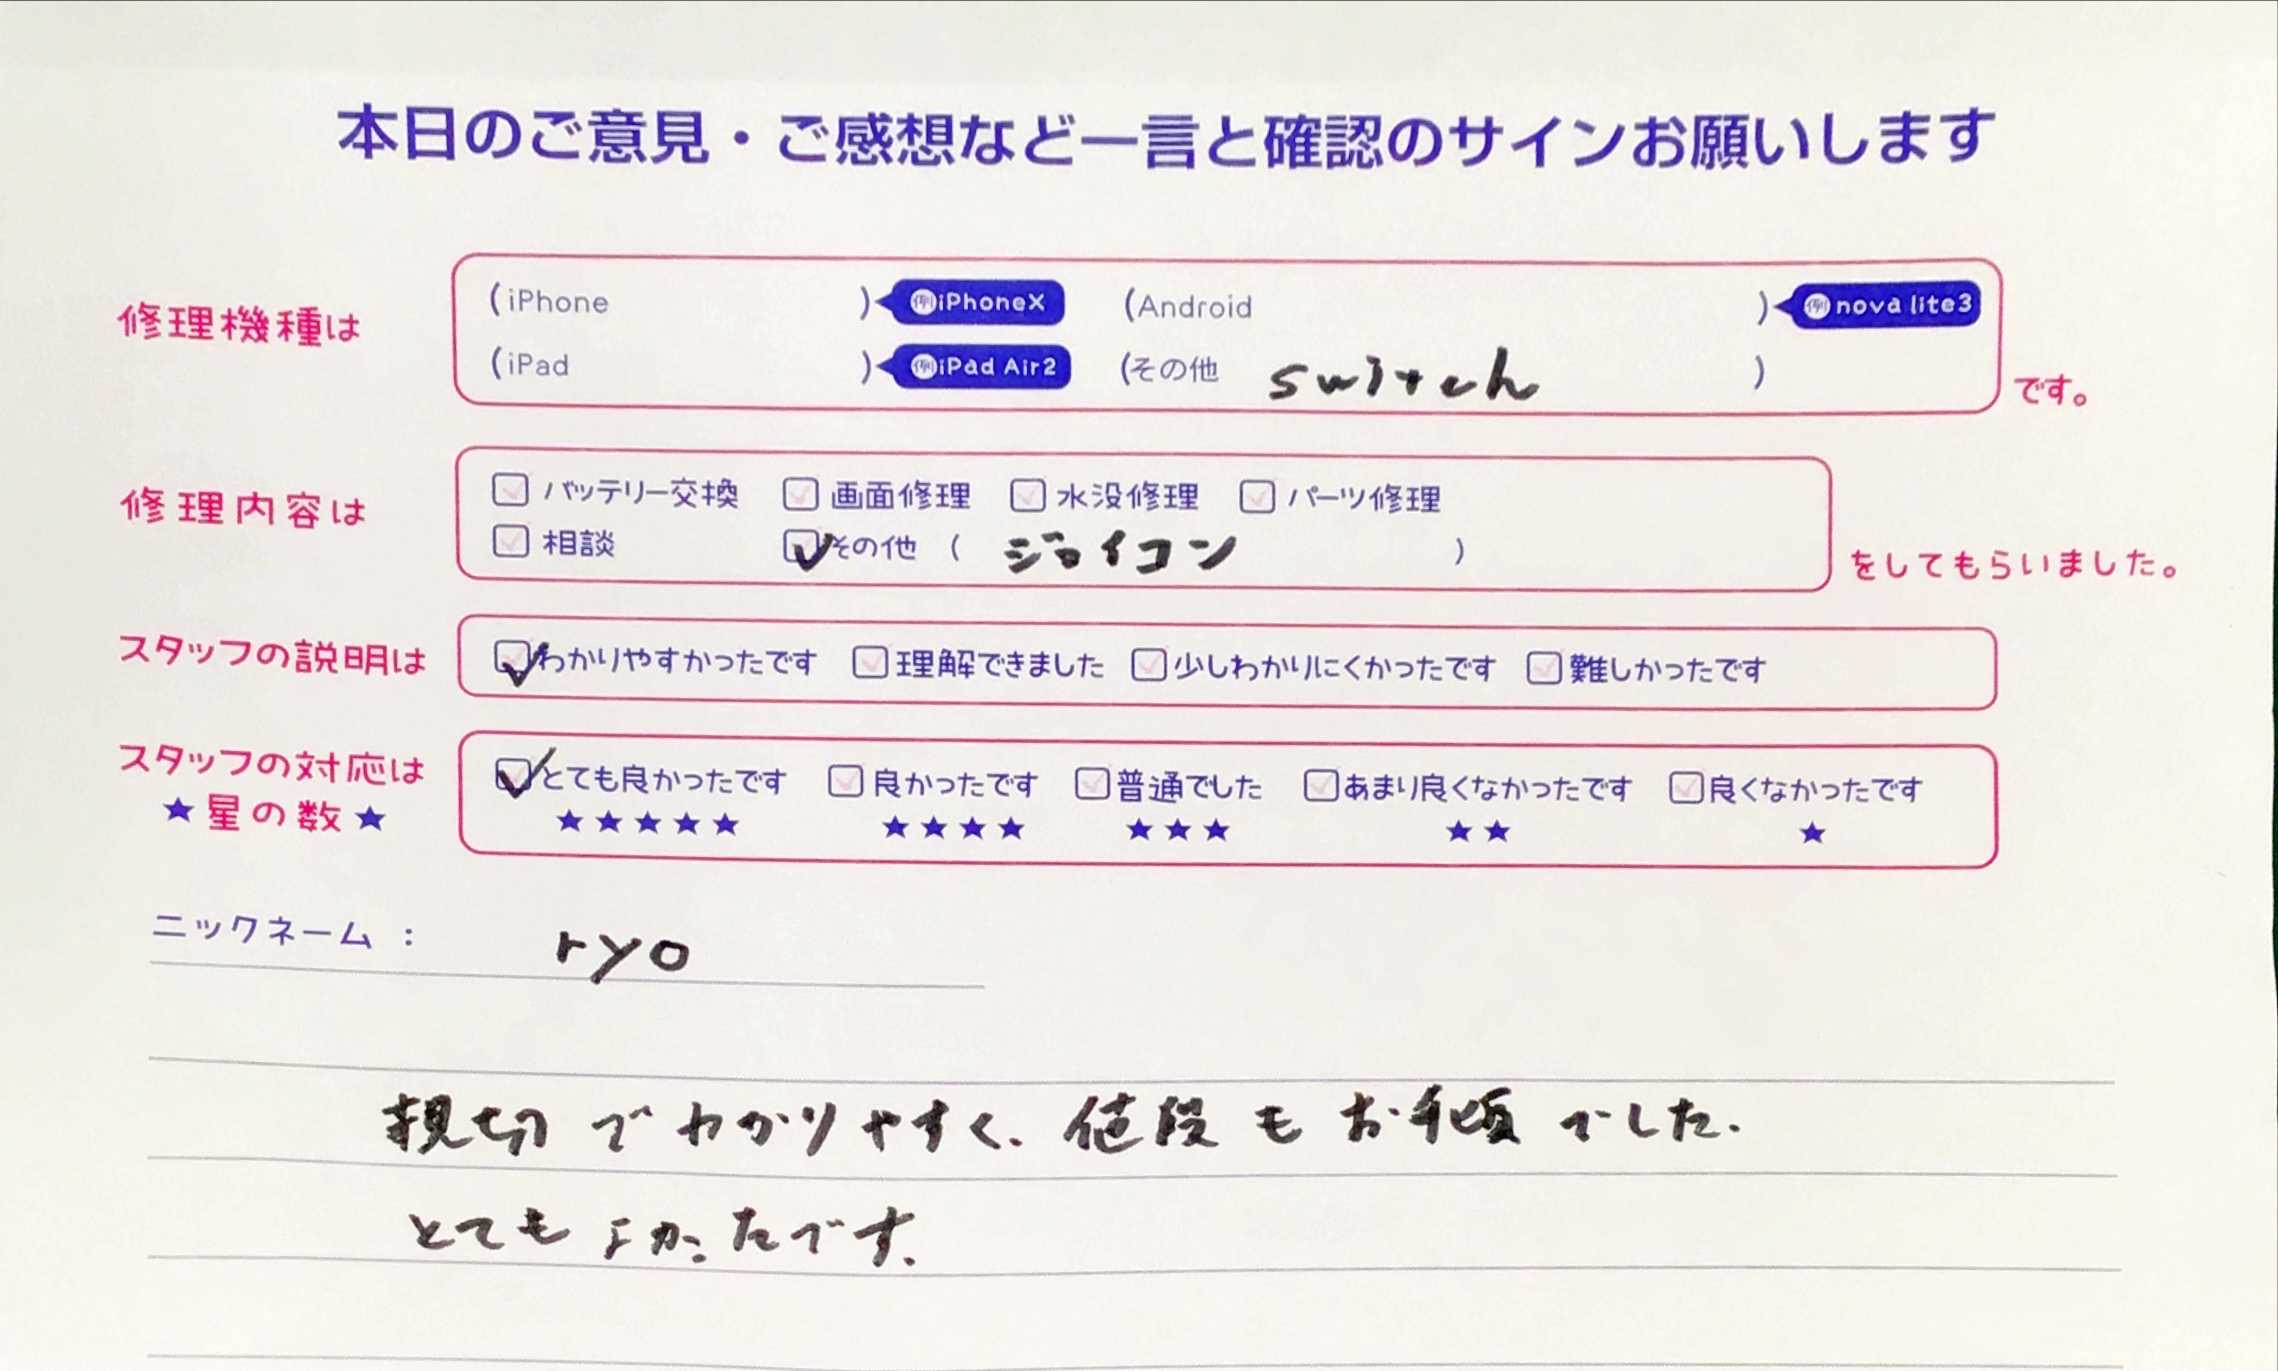 本日のご意見・ご感想など一言と確認のサインお願いします
修理機種は
(iPhone ) 例iPhoneX (Android ) 例nova lite3
(iPad ) 例iPad Air2 (その他 switch ) です。
修理内容は
バッテリー交換 画面修理 水没修理 パーツ修理
相談 その他 ( ジョイコン ) をしてもらいました。
スタッフの説明は わかりやすかったです 理解できました 少しわかりにくかったです 難しかったです
スタッフの対応は とても良かったです 良かったです 普通でした あまり良くなかったです 良くなかったです
★星の数★ ★★★★★ ★★★★ ★★★ ★★ ★
ニックネーム : ryo
親切でわかりやすく、値段もお手頃でした.
とてもよかったです.